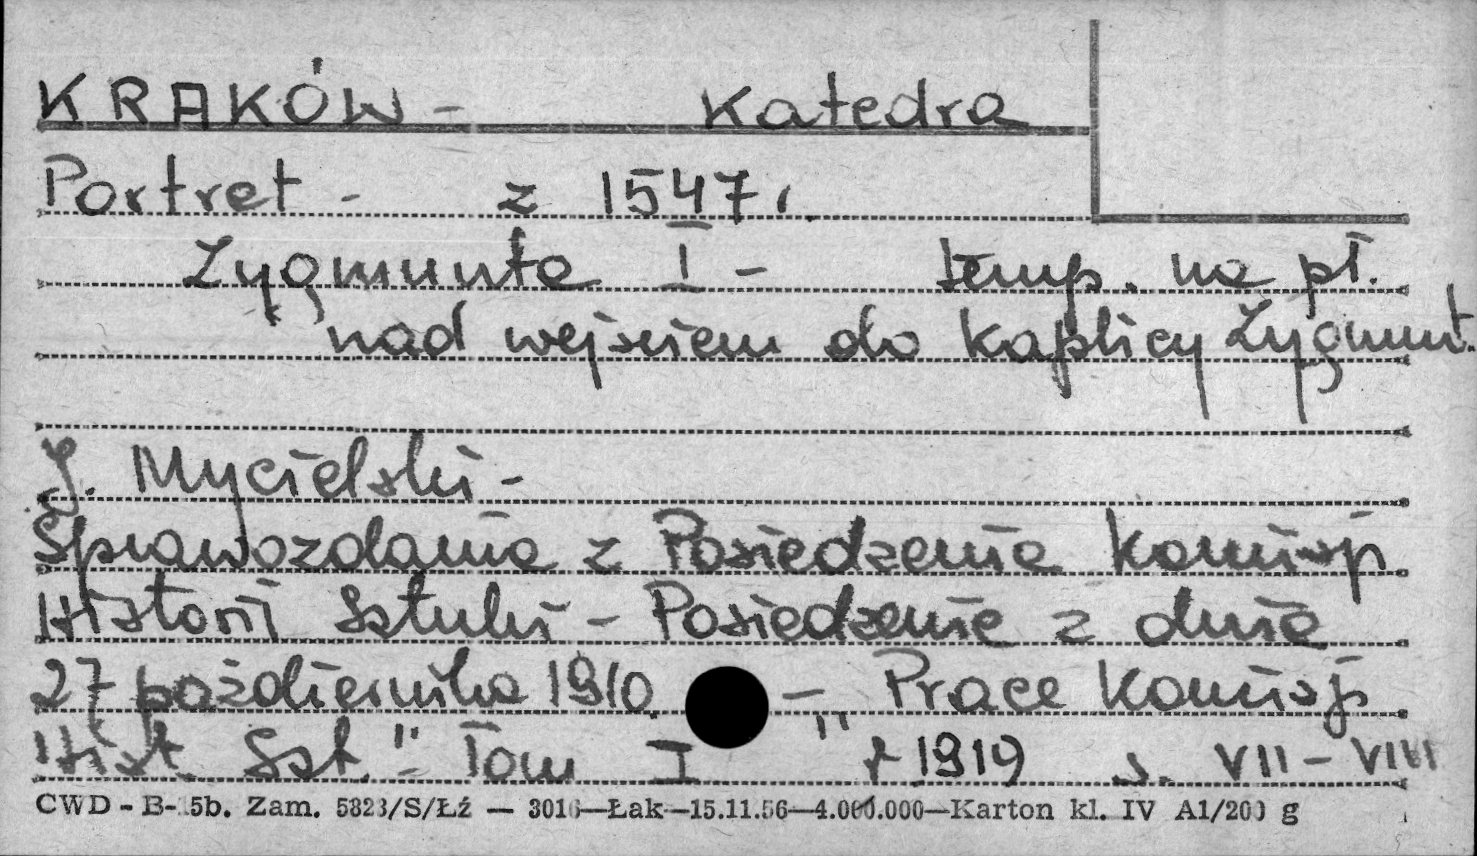 KRAKÓW - Katedra
Portret - z 1547 r.
Zygmunta I - temp. na pł.
nad wejściem do Kaplicy Zygmunt.
J. Mycielski -
Sprawozdania z Posiedzenia Komisji
Historii Sztuki - Posiedzenie z dnia
27 października 1910 - „Prace Komisji
Hist. Szt." - Tom I r 1919 s. VII - VIII
CWD - B-15b. Zam. 5823/S/Łź — 3016—Łak—15.11.56—4.000.000—Karton kl. IV A1/200 g